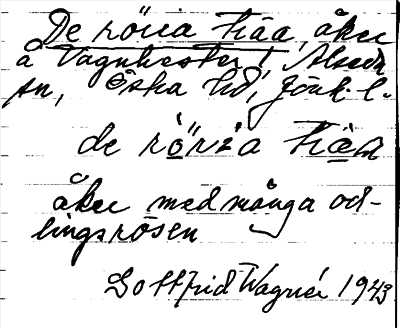 De röria häa, åker
å Vagnhester i Alseda
sn, Östra hd, Jönk. l.
de röria häa
åker med många od-
lingsrösen
Gottfrid Wagnér 1943